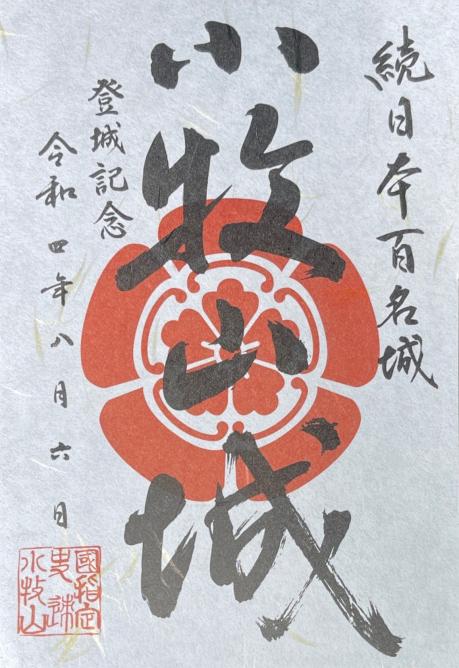 続日本百名城
小牧山城
登城記念
令和四年八月六日
國指定
史跡
小牧山